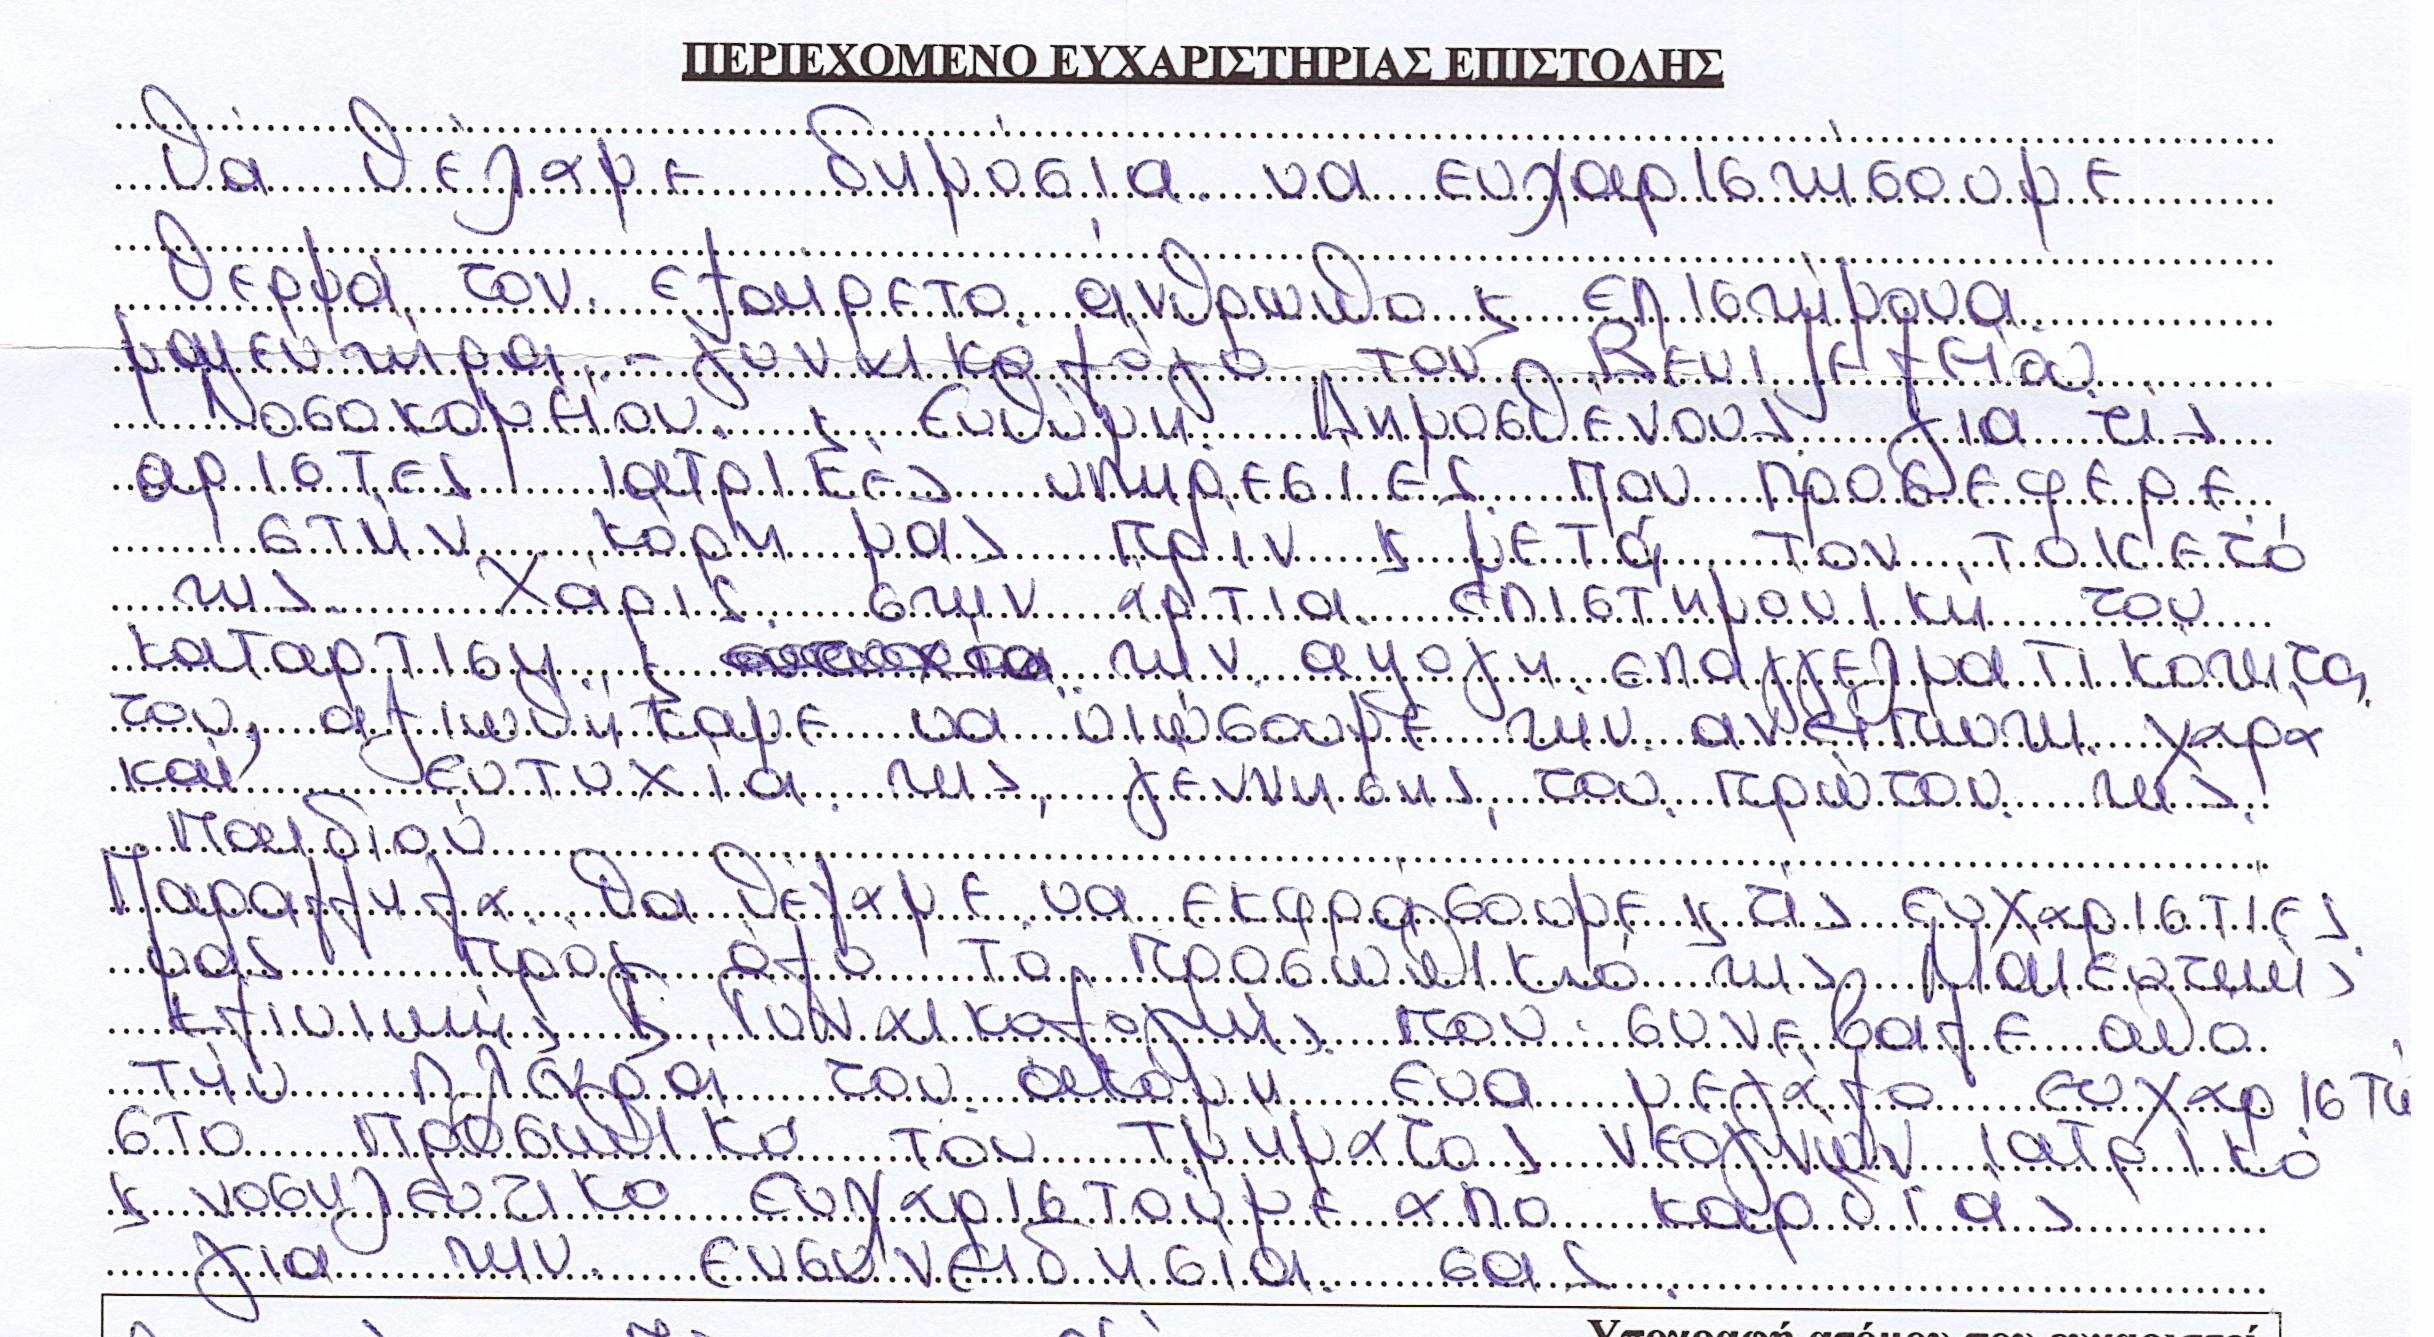 ΠΕΡΙΕΧΟΜΕΝΟ ΕΥΧΑΡΙΣΤΗΡΙΑΣ ΕΠΙΣΤΟΛΗΣ
Θά θέλαμε δημόσια να ευχαριστήσουμε
θερμά τον εξαίρετο άνθρωπο κ επιστήμονα
μαιευτήρα - γυναικολόγο του Βενιζελείου
Νοσοκομείου κ. Ευθύμη Δημοσθένους για τίς
αριστες ιατρικές υπηρεσίες που προσέφερε
στήν κόρη μας πρίν κ μετά τον τοκετό
της. Χάρις στην άρτια επιστημονική του
καταρτιση κ την αψογη επαγγελματικότητα
του, αξιωθήκαμε να νιώσουμε την ανείπωτη χαρα
και ευτυχία της γεννησης του πρώτου της
παιδιού
Παράλληλα θα θέλαμε να εκφράσουμε κ τίς ευχαριστίες
μας πρός όλο το προσωπικό της Μαιευτικής
Κλινικής κ Γυναικολογικής που συνέβαλε απο
τήν πλευρά του ακόμη ενα μεγάλο ευχαριστώ
στο προσωπικό του τμήματος νεογνών ιατρικό
κ νοσηλευτικο ευχαριστούμε απο καρδιάς
για την ευσυνειδησία σας.